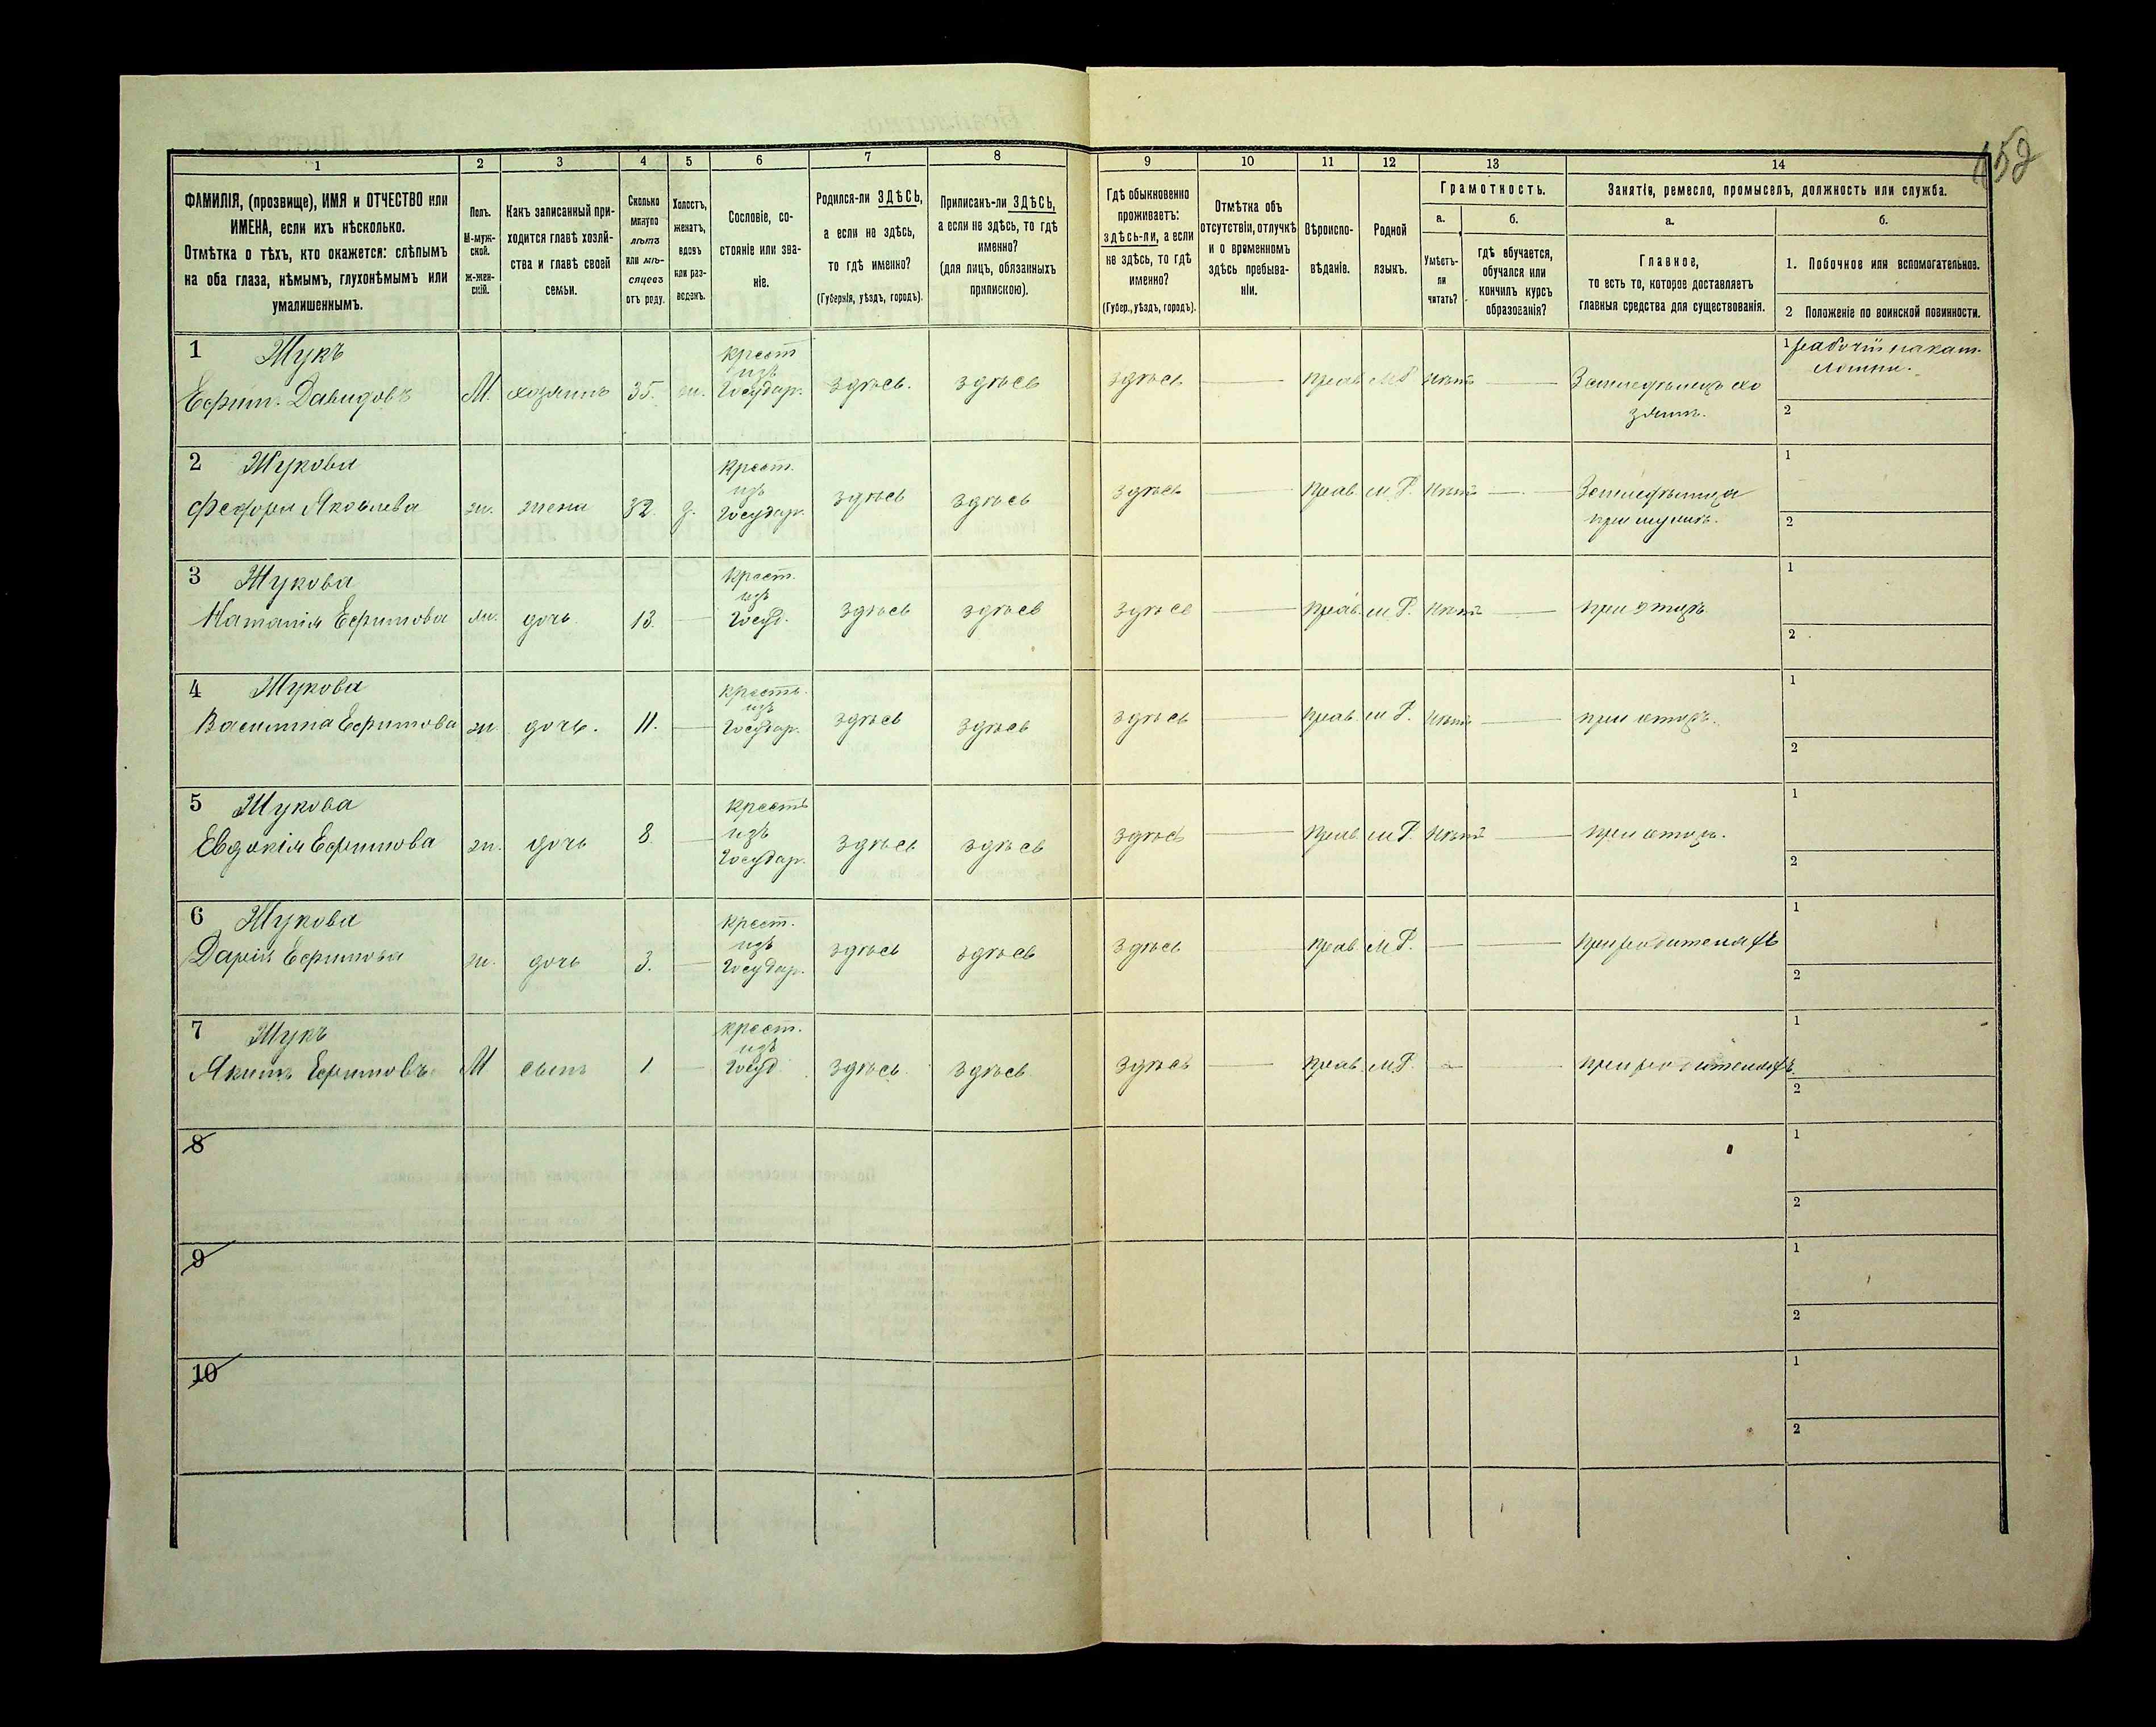 152
1 2 3 4 5 6 7 8 9 10 11 12 13 14
ФАМИЛІЯ, (прозвище), ИМЯ и ОТЧЕСТВО или
ИМЕНА, если ихъ нѣсколько.
Отмѣтка о тѣхъ, кто окажется: слѣпымъ
на оба глаза, нѣмымъ, глухонѣмымъ или
умалишеннымъ.
Полъ.
М-муж-
ской.
Ж-жен-
скій.
Какъ записанный при-
ходится главѣ хозяй-
ства и главѣ своей
семьи.
Сколько
минуло
лѣтъ
или мѣ-
сяцевъ
отъ роду.
Холостъ,
женатъ,
вдовъ
или раз-
веденъ.
Сословіе, со-
стояніе или зва-
ніе.
Родился-ли ЗДѢСЬ,
а если не здѣсь,
то гдѣ именно?
(Губернія, уѣздъ, городъ).
Приписанъ-ли ЗДѢСЬ,
а если не здѣсь, то гдѣ
именно?
(для лицъ, обязанныхъ
припискою).
Гдѣ обыкновенно
проживаетъ:
здѣсь-ли, а если
не здѣсь, то гдѣ
именно?
(Губер., уѣздъ, городъ).
Отмѣтка объ
отсутствіи, отлучкѣ
и о временномъ
здѣсь пребыва-
ніи.
Вѣроиспо-
вѣданіе.
Родной
языкъ.
Грамотность.
а.
Умѣетъ-
ли
читать?
б.
Гдѣ обучается,
обучался или
кончилъ курсъ
образованія?
Занятія, ремесло, промыселъ, должность или служба.
а.
Главное,
то есть то, которое доставляетъ
главныя средства для существованія.
б.
1. Побочное или вспомогательное.
2 Положеніе по воинской повинности.
1 Жукъ
Ефим. Давидовъ М. хозяинъ 35. ж. Крест изъ Государ. здѣсь. здѣсь здѣсь прав М Р нѣтъ Земледѣлецъ хо
зяинъ.
1 рабочій
2
2 Жукова
Федора Яковлева ж. жена 32. з. Крест. изъ Государ. здѣсь здѣсь здѣсь прав. М. Р. нѣтъ Земледѣлица
при мужѣ.
1
2
3 Жукова
Наталія Ефимова ж. дочь 13. Крест. изъ Госуд. здѣсь здѣсь здѣсь прав. М Р. нѣтъ при отцѣ
1
2
4 Жукова
Василина Ефимова ж дочь. 11. Крестъ. изъ Государ. здѣсь здѣсь здѣсь прав. М Р. нѣтъ при отцѣ.
1
2
5 Жукова
Евдокія Ефимова ж. дочь 8. Крестъ изъ Государ. здѣсь здѣсь здѣсь прав М Р. нѣтъ при отцѣ.
1
2
6 Жукова
Дарія Ефимова ж. дочь 3. Крест. изъ Государ. здѣсь здѣсь здѣсь прав М Р. при родителяхъ
1
2
7 Жукъ
Якимъ Ефимовъ М сынъ 1 Крест. изъ Госуд здѣсь здѣсь здѣсь прав. М.Р. при родителяхъ.
1
2
8
1
2
9
1
2
10
1
2